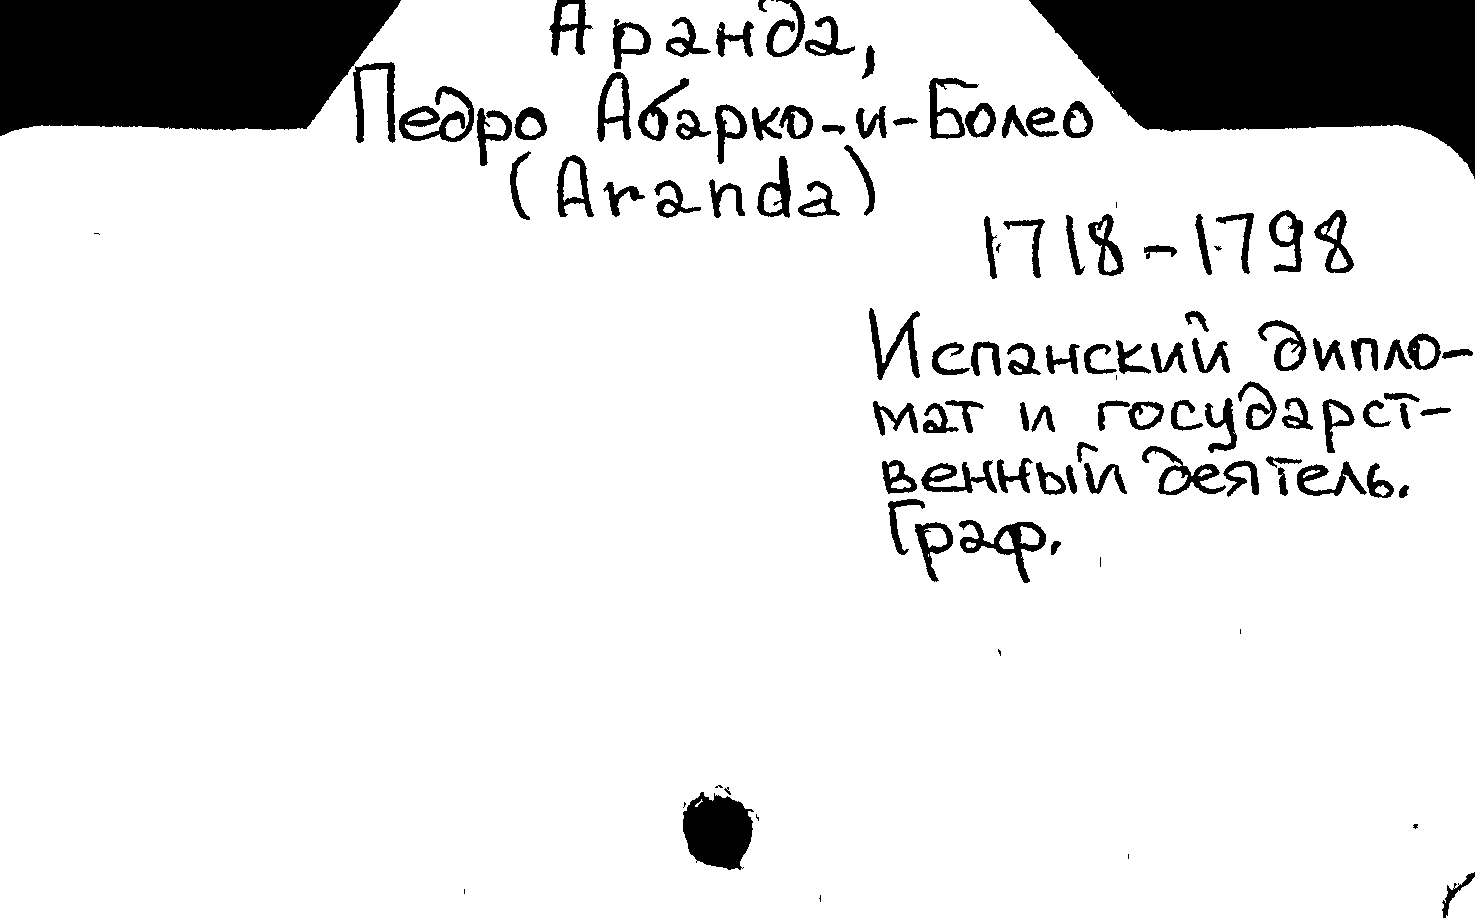 Аранда,
Педро Абарко-и-Болео
(Aranda)
1718-1798
Испанский дипло-
мат и государст-
венный деятель.
Граф.